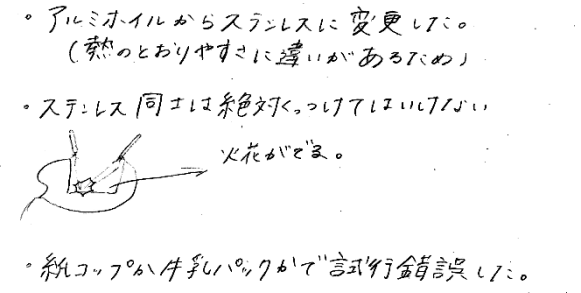 ・アルミホイルからステンレスに変更した。
(熱のとおりやすさに違いがあるため)
・ステンレス同士は絶対くっつけてはいけない
火花がでる。
・紙コップか牛乳パックかで試行錯誤した。